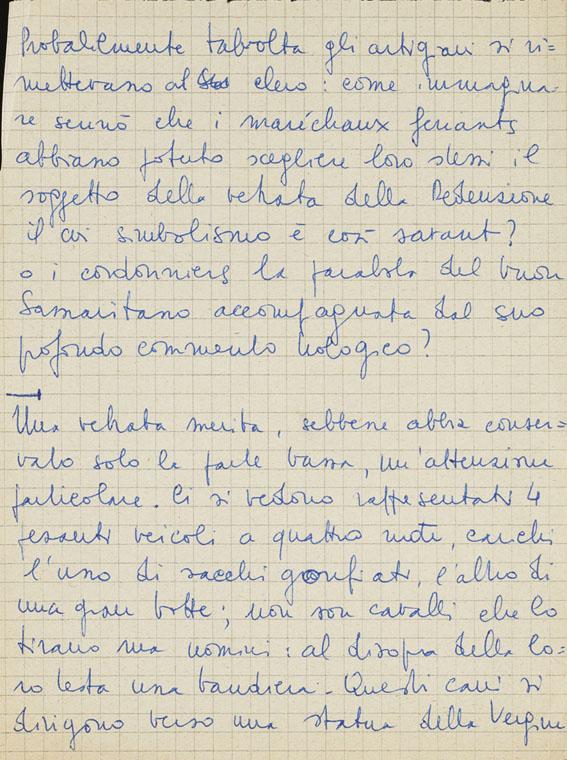 Probabilmente talvolta gli artigiani si ri=
mettevano al clero : come immagina-
re sennò che i maréchaux ferrants
abbiano potuto scegliere loro stessi il
soggetto della vetrata della Redenzione
il cui simbolismo è così savant?
o i cordonniers la parabola del buon
Samaritano accompagnata dal suo
profondo commento teologico?
Una vetrata merita, sebbene abbia conser=
vato solo la parte bassa, un'attenzione
particolare. Ci si vedono rappresentati 4
pesanti veicoli a quattro ruote, carichi
l'uno di sacchi gonfiati, l'altro di
una gran botte; non son cavalli che lo
tirano ma uomini : al disopra della lo=
ro testa una bandiera. Questi carri si
dirigono verso una statua della Vergine